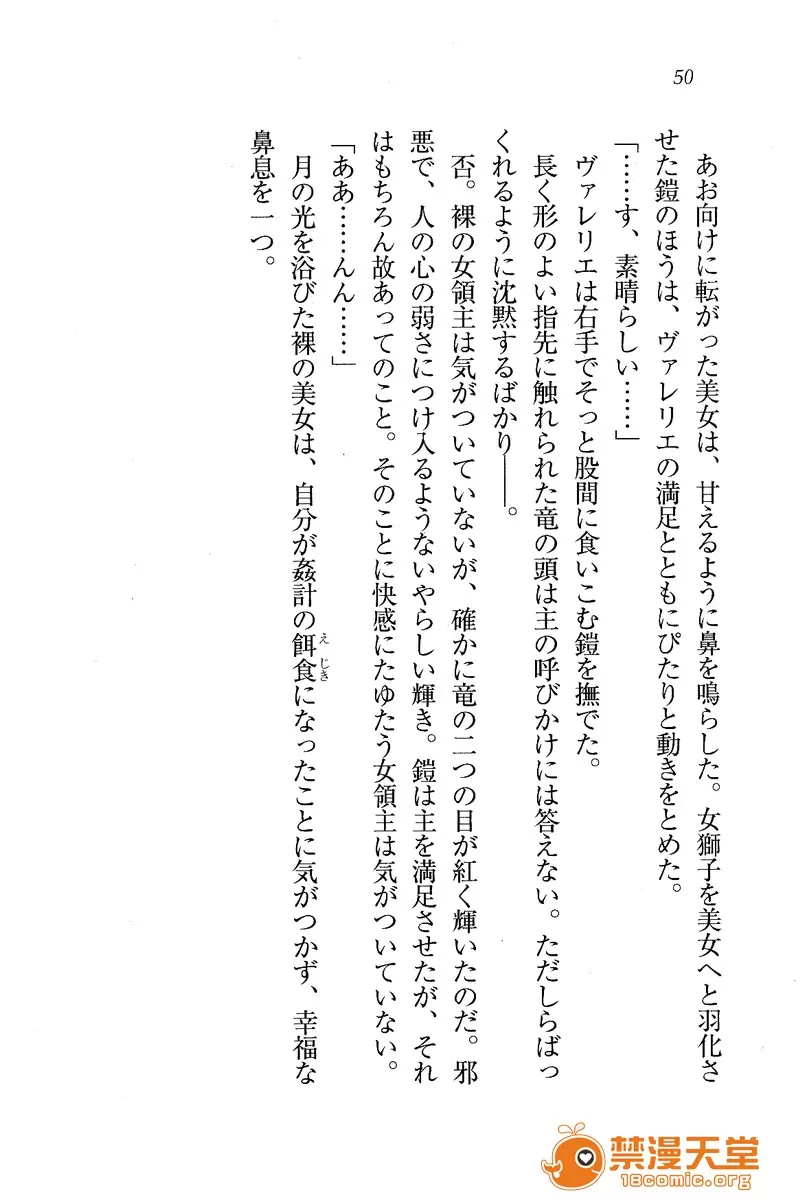 50
あお向けに転がった美女は、甘えるように鼻を鳴らした。女獅子を美女へと羽化さ
せた鎧のほうは、ヴァレリエの満足とともにぴたりと動きをとめた。
「……す、素晴らしい……」
ヴァレリエは右手でそっと股間に食いこむ鎧を撫でた。
長く形のよい指先に触れられた竜の頭は主の呼びかけには答えない。ただしらばっ
くれるように沈黙するばかり――。
否。裸の女領主は気がついていないが、確かに竜の二つの目が紅く輝いたのだ。邪
悪で、人の心の弱さにつけ入るようないやらしい輝き。鎧は主を満足させたが、それ
はもちろん故あってのこと。そのことに快感にたゆたう女領主は気がついていない。
「ああ……んん……」
月の光を浴びた裸の美女は、自分が姦計の餌食になったことに気がつかず、幸福な
えじき
鼻息を一つ。
禁漫天堂
18comic.org